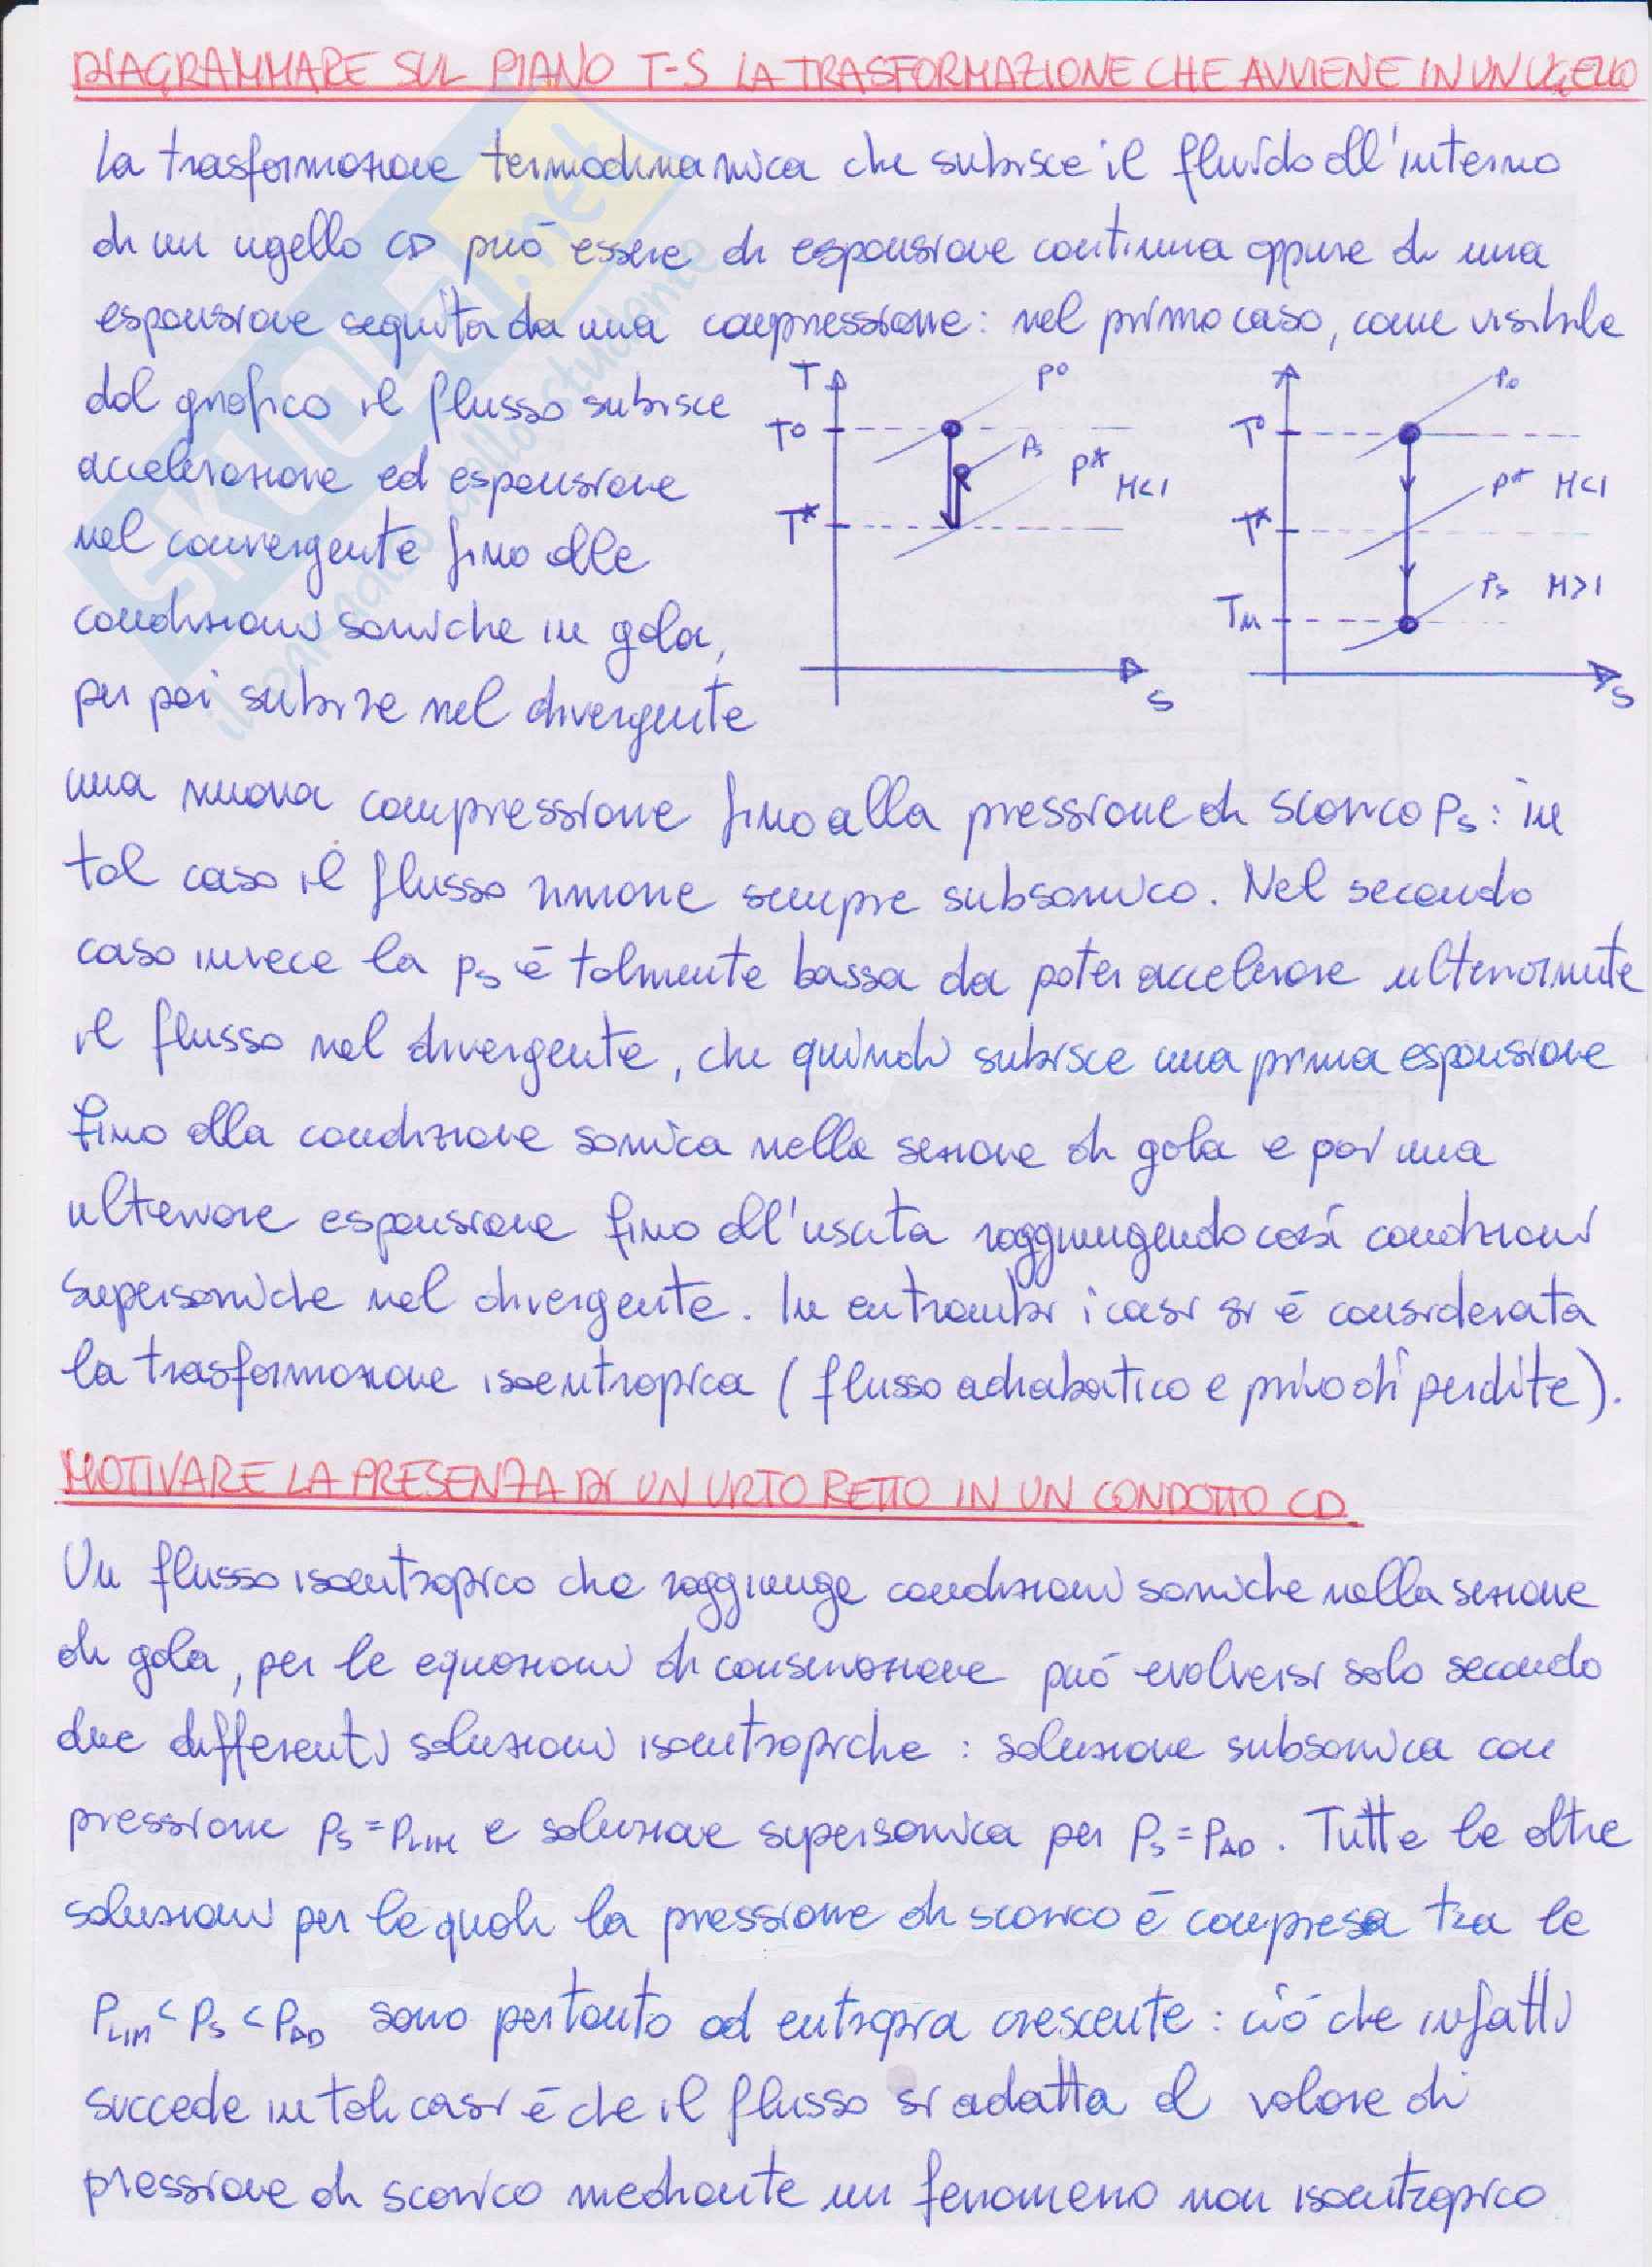 DIAGRAMMARE SUL PIANO T-S LA TRASFORMAZIONE CHE AVVIENE IN UN UGELLO
La trasformazione termodinamica che subisce il fluido all'interno
di un ugello CD può essere di espansione continua oppure di una
espansione seguita da una compressione: nel primo caso, come visibile
dal grafico il flusso subisce
accelerazione ed espansione
nel convergente fino alle
condizioni soniche in gola,
per poi subire nel divergente
T P° T° Ps P* M<1 T* S
P° T° P* M<1 T* Ps M>1 Tu S
una nuova compressione fino alla pressione di scarico Ps: in
tal caso il flusso rimane sempre subsonico. Nel secondo
caso invece la Ps è talmente bassa da poter accelerare ulteriormente
il flusso nel divergente, che quindi subisce una prima espansione
fino alla condizione sonica nella sezione di gola e poi una
ulteriore espansione fino all'uscita raggiungendo così condizioni
supersoniche nel divergente. In entrambi i casi si è considerata
la trasformazione isoentropica (flusso adiabatico e privo di perdite).
MOTIVARE LA PRESENZA DI UN URTO RETTO IN UN CONDOTTO CD.
Un flusso isoentropico che raggiunge condizioni soniche nella sezione
di gola, per le equazioni di conservazione può evolversi solo secondo
due differenti soluzioni isoentropiche: soluzione subsonica con
pressione Ps=PLIM e soluzione supersonica per Ps=PAD. Tutte le altre
soluzioni per le quali la pressione di scarico è compresa tra le
PLIM<Ps<PAD sono pertanto ad entropia crescente: ciò che infatti
succede in tali casi è che il flusso si adatta al valore di
pressione di scarico mediante un fenomeno non isoentropico
SKUOLA.net
il paradiso dello studente